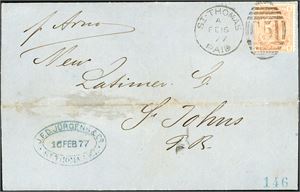 p Arno
ST. THOMAS
A
FE 16
77
PAID
New
Latimer &
St Johns
P.R.
J.F.D. JÜRGENS & Co.
16 FEB 77
ST THOMAS
146